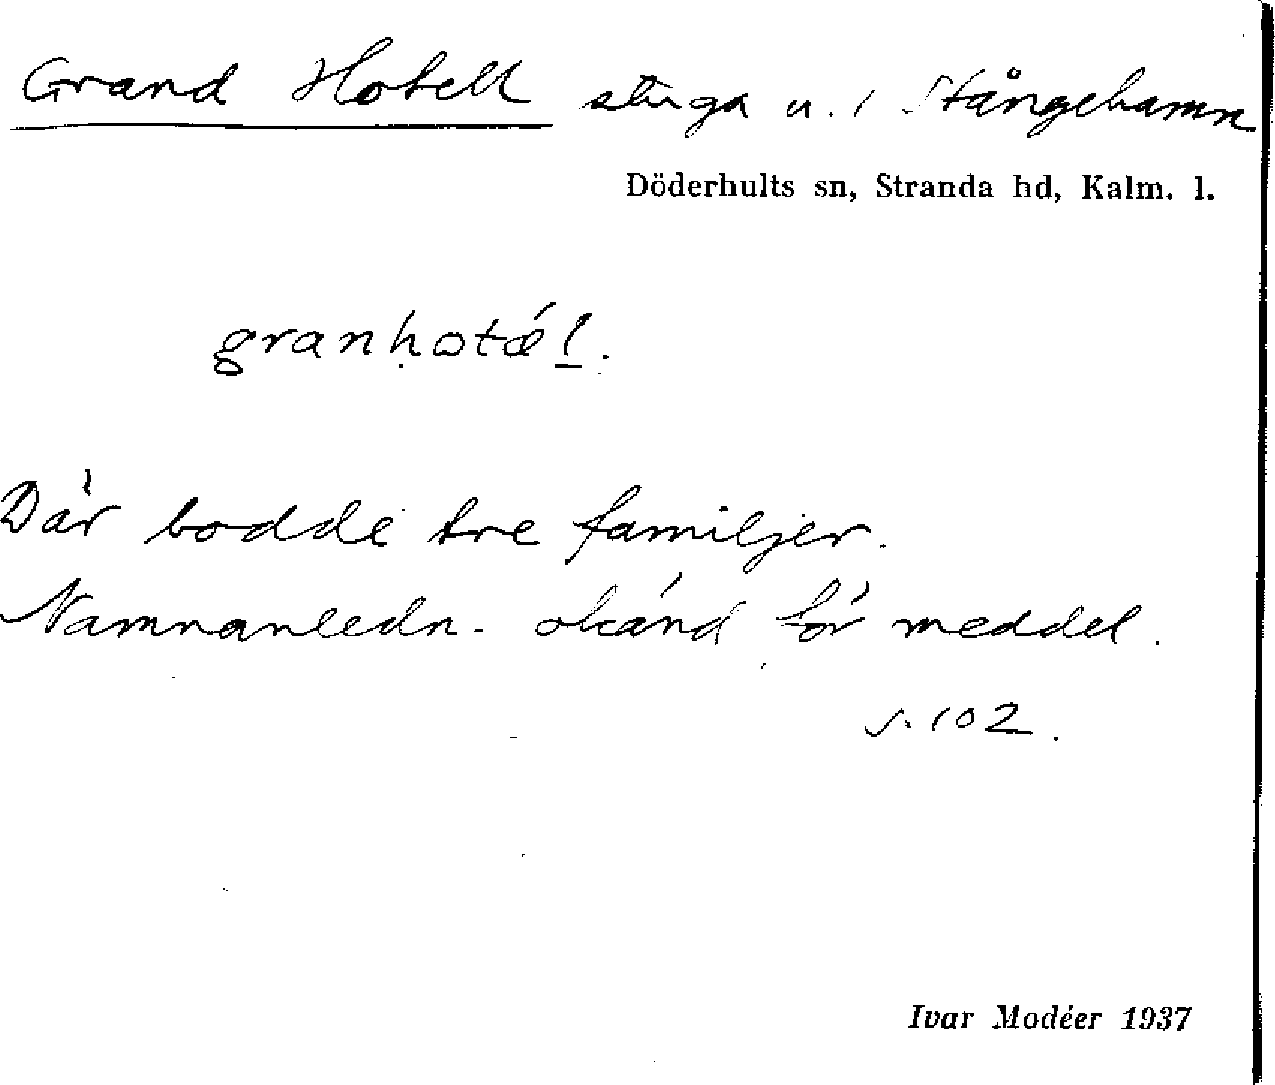 Grand Hotell stuga u. i Stångehamn
Döderhults sn, Stranda hd, Kalm. l.
granhotǽl.
Där bodde tre familjer.
Namnanledn. okänd för meddel.
s. 102.
Ivar Modéer 1937